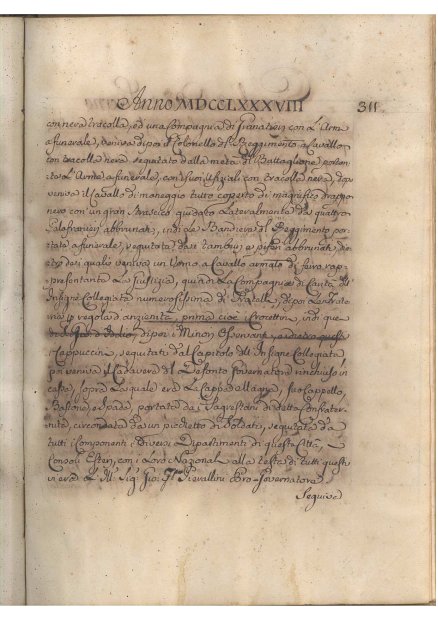 Anno MDCCLXXXVIII 311
con nera tracolla, ed una Compagnia di Granatieri con l'Arme
a funerale, veniva dipoi il Colonello del Reggimento a Cavallo
con tracolla nera seguitato dalla metà di Battaglione portante
l'Arme a funerale, con i suoi Ufiziali con tracolla nera, dopo
veniva il Cavallo di maneggio tutto coperto di magnifico drappo
nero con un gran lateralmente da quattro
Palafrenieri abbrunati, indi la Bandiera del Reggimento por
tata a funerale, seguitata dai Tamburi, e pifferi abbrunati, die
tro dei quali veniva un Uomo a Cavallo armato di ferro rap
presentante la Giustizia, quindi la Compagnia di Carità dell'
Insigne Collegiata numerosissima di Fratelli, dipoi
i regolari prima cioè i Crocettini, indi que
dipoi i Minori Osservanti,
i Cappuccini, seguitati dal Capitolo dell'Insigne Collegiata
poi veniva il Cadavere del Defonto Governatore rinchiuso in
cassa, sopra la quale era la Cappa, suo Cappello,
Bastone, e Spada, portato dai Sagrestani di detta Confrater
nita, circondato da un picchetto di Soldati, seguitato da
tutti i Componenti i Diversi Dipartimenti di questa Città,
Consoli Esteri, con i loro Nazionali alla testa di tutti questi
vi era l' Ill.mo Sig.
Pro-Governatore
Seguiva